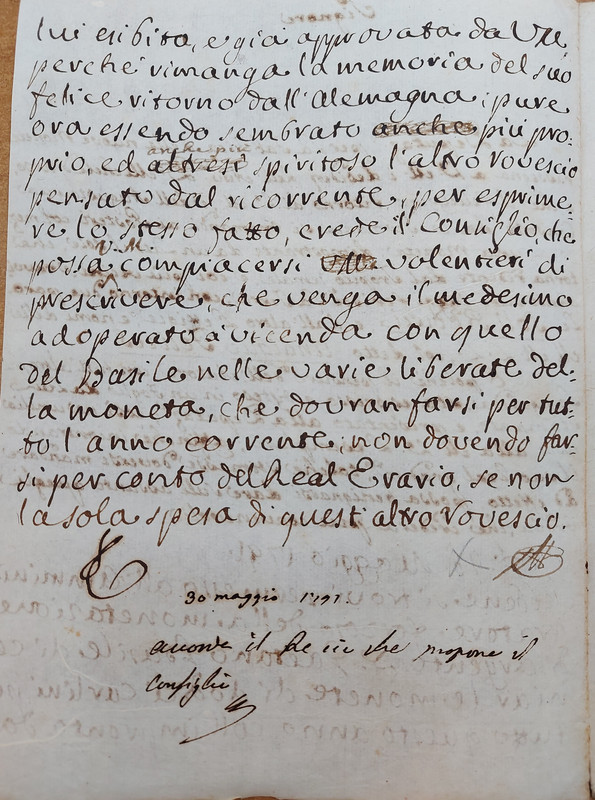 lui esibita, e già approvata da V.M.
perchè rimanga la memoria del suo
felice ritorno dall'Alemagna; pure
ora essendo sembrato anche più pro-
prio, ed altresì anche più spiritoso l'altro rovescio
pensato dal ricorrente, per esprime-
re lo stesso fatto, crede il Consiglio, che
possa V.M. compiacersi V.M. valentieri di
prescrivere, che venga il medesimo
adoperato a vicenda con quello
del Basile nelle varie liberate del-
la moneta, che dovran farsi per tut-
to l'anno corrente; non dovendo far-
si per conto del Real Erario, se non
la sola spesa di quest'altro rovescio.
30 maggio 1791.
accorda il Re ciò che propone il
Consiglio